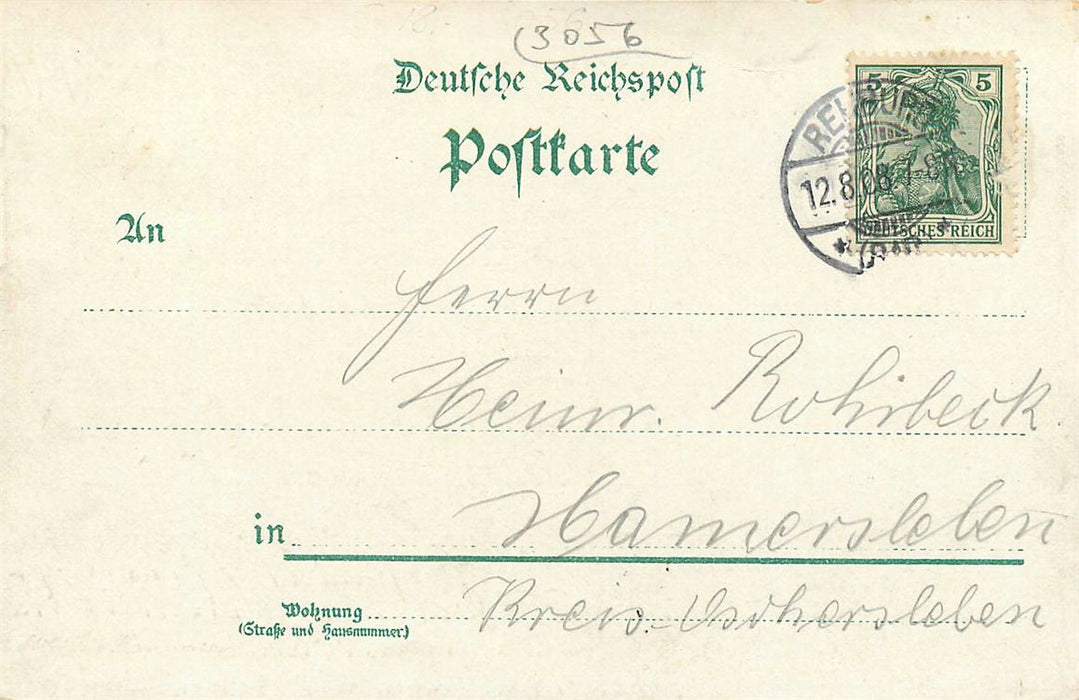 (3056
Deutsche Reichspost
Postkarte
5 5
REHBURG
12.8.08.
DEUTSCHES REICH
An
Herrn
Heinr. Rohrbeck
in Hamersleben
Wohnung Kreis Oschersleben
(Straße und Hausnummer)